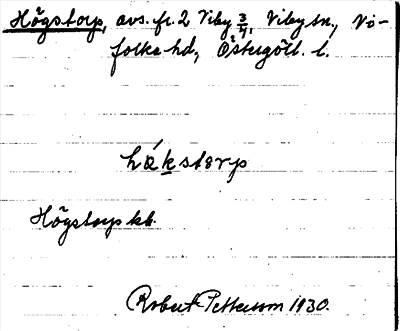 Högstorp, avs. fr. 2 Viby 3/4, Viby sn., Vi-
folka hd, Östergötl. l.
hǿkstǝrp
Högstorp kb.
Robert Pettersson 1930.